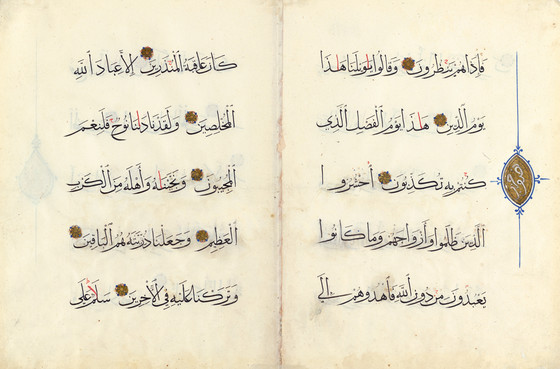 فَإِذَا هُمْ يَنْظُرُونَ وَقَالُوا يٰوَيْلَنَا هٰذَا
يَوْمُ الدِّينِ هٰذَا يَوْمُ الْفَصْلِ الَّذِي
كُنْتُمْ بِهِ تُكَذِّبُونَ احْشُرُوا
الَّذِينَ ظَلَمُوا وَأَزْوَاجَهُمْ وَمَا كَانُوا
يَعْبُدُونَ مِنْ دُونِ اللّٰهِ فَاهْدُوهُمْ إِلَى
كَانَ عَاقِبَةُ الْمُنْذَرِينَ إِلَّا عِبَادَ اللّٰهِ
الْمُخْلَصِينَ وَلَقَدْ نَادٰنَا نُوحٌ فَلَنِعْمَ
الْمُجِيبُونَ وَنَجَّيْنٰهُ وَأَهْلَهُ مِنَ الْكَرْبِ
الْعَظِيمِ وَجَعَلْنَا ذُرِّيَّتَهُ هُمُ الْبَاقِينَ
وَتَرَكْنَا عَلَيْهِ فِي الْآخِرِينَ سَلٰمٌ عَلَى